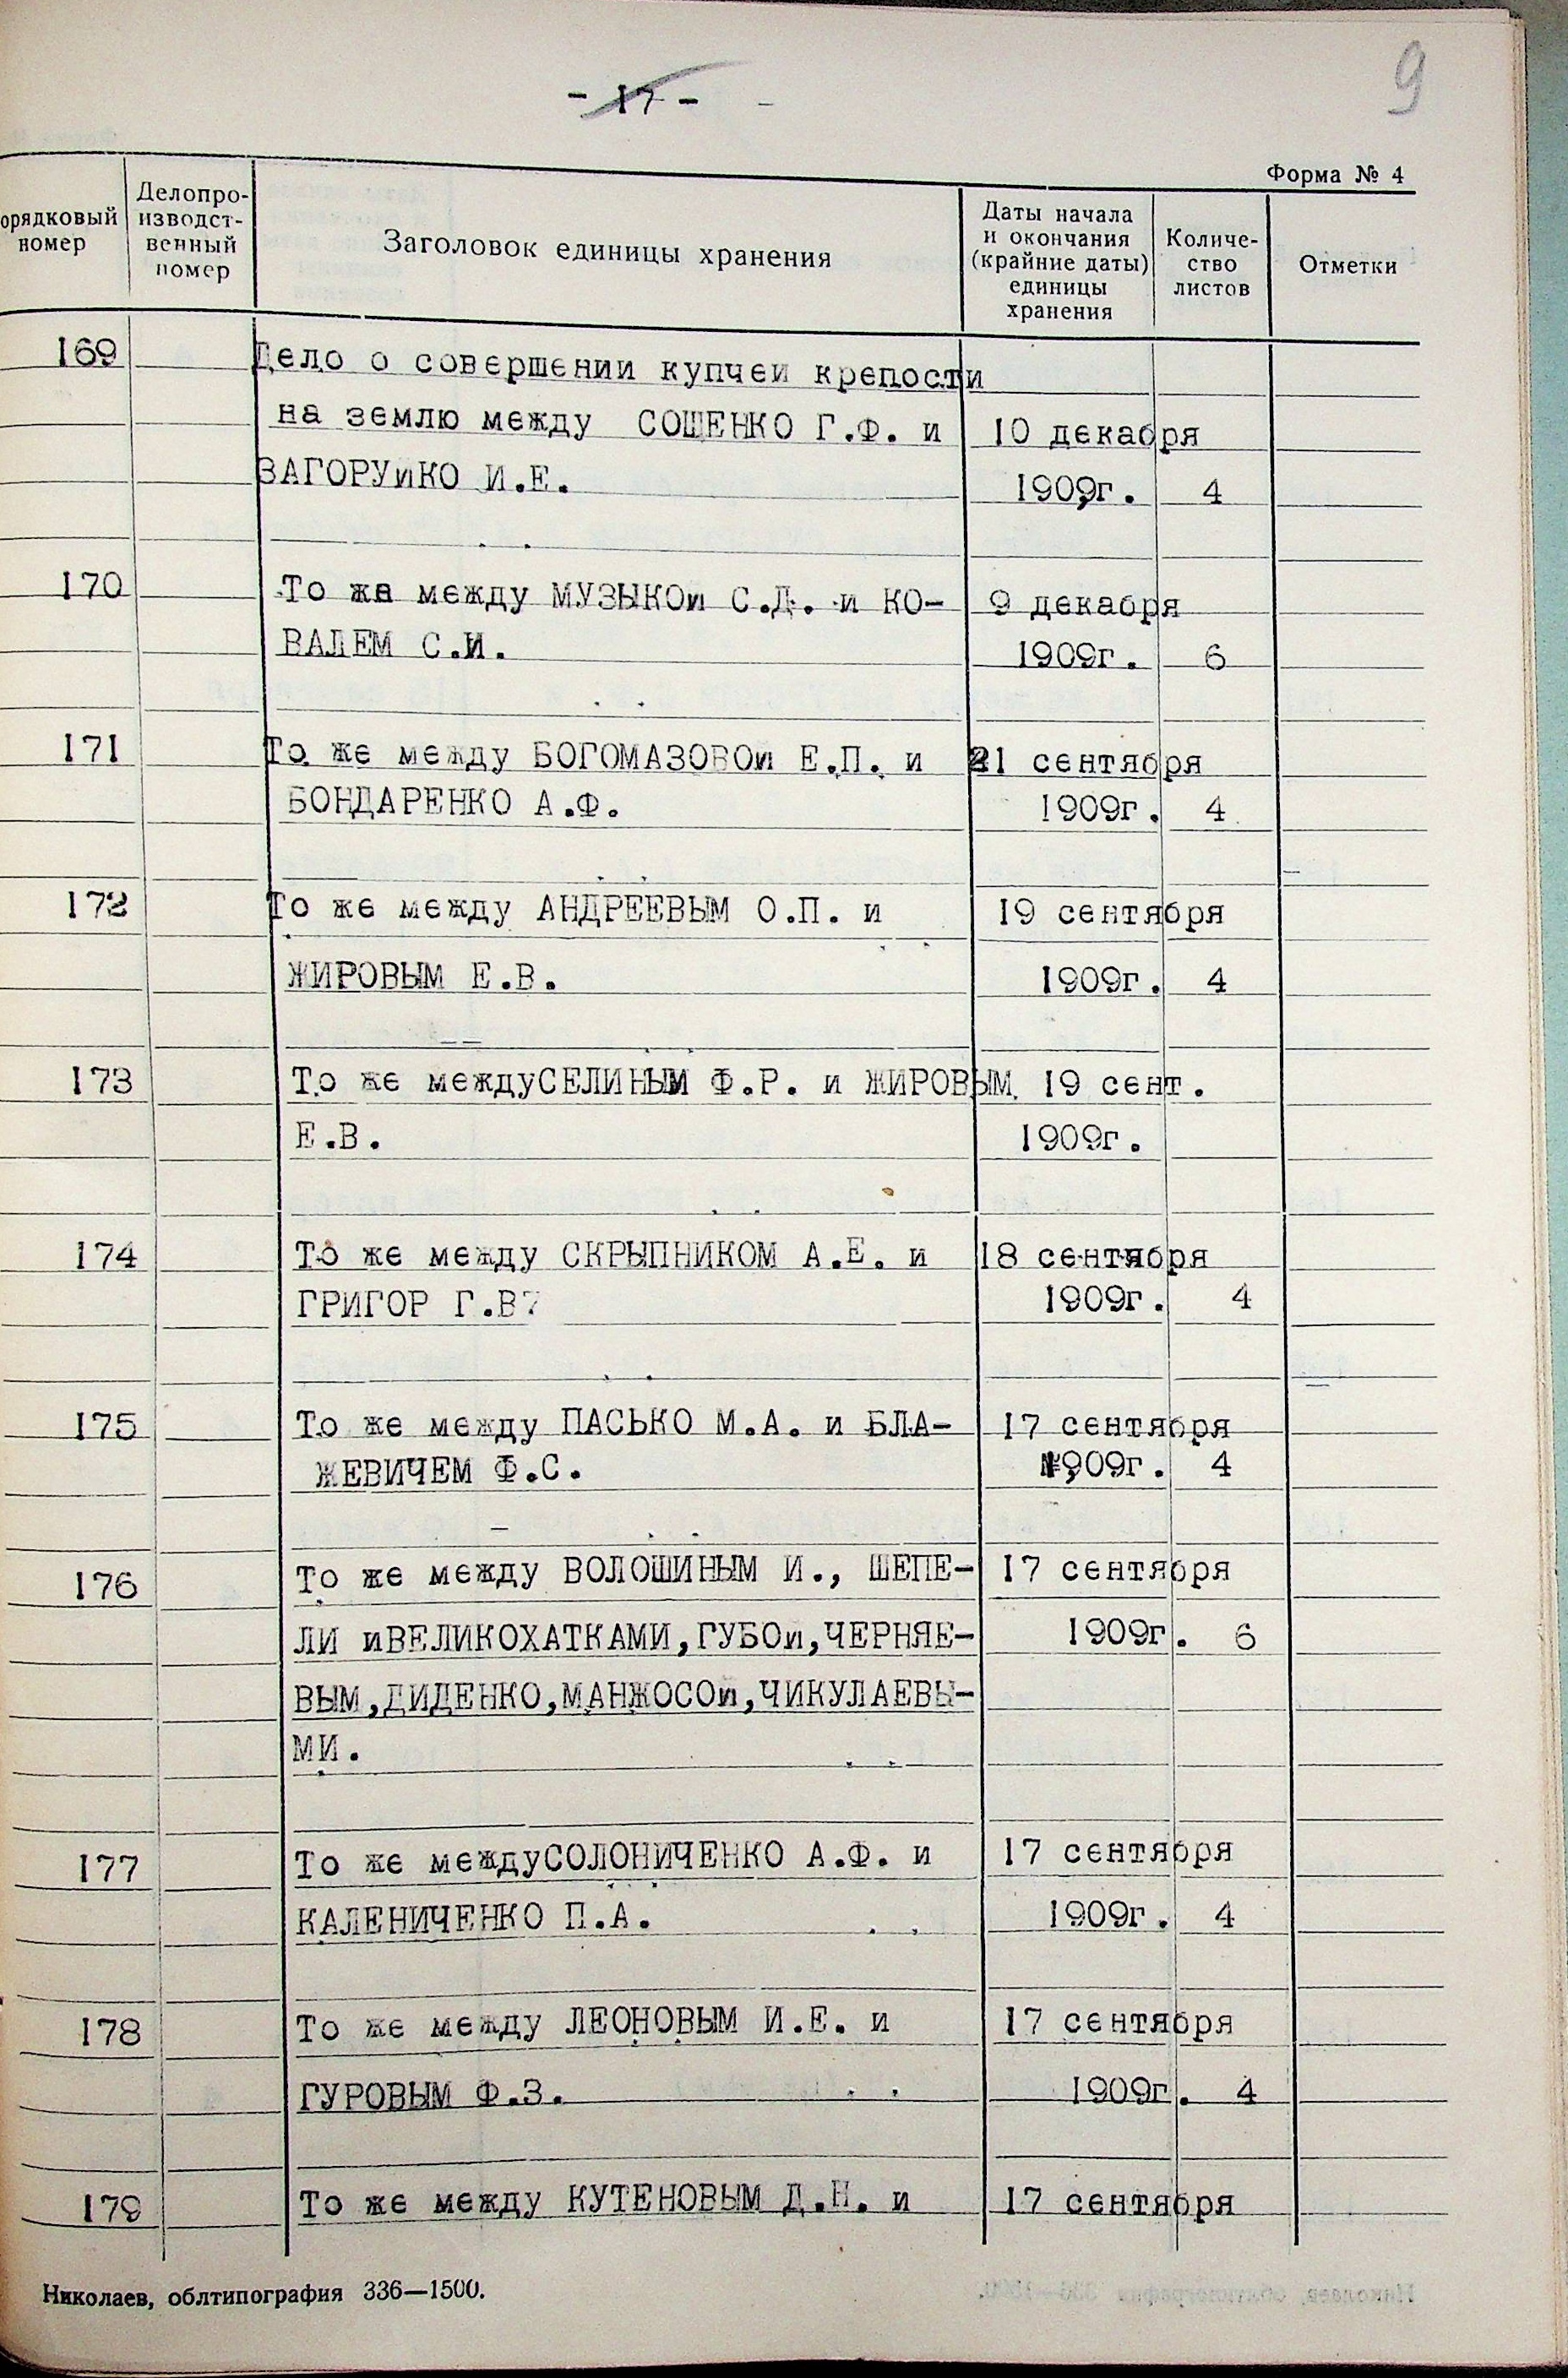 - 17 -
9
Форма № 4
орядковый номер
Делопро-изводст-венный номер
Заголовок единицы хранения
Даты начала и окончания (крайние даты) единицы хранения
Количе-ство листов
Отметки
169 Дело о совершении купчеи крепости
на землю между СОШЕНКО Г.Ф. и 10 декабря
ЗАГОРУиКО И.Е. 1909г. 4
170 То же между МУЗЫКОи С.Д. и КО- 9 декабря
ВАЛЕМ С.И. 1909г. 6
171 То же между БОГОМАЗОВОи Е.П. и 21 сентября
БОНДАРЕНКО А.Ф. 1909г. 4
172 То же между АНДРЕЕВЫМ О.П. и 19 сентября
ЖИРОВЫМ Е.В. 1909г. 4
173 То же междуСЕЛИНЫМ Ф.Р. и ЖИРОВЫМ 19 сент.
Е.В. 1909г.
174 То же между СКРЫПНИКОМ А.Е. и 18 сентября
ГРИГОР Г.В7 1909г. 4
175 То же между ПАСЬКО М.А. и БЛА- 17 сентября
ЖЕВИЧЕМ Ф.С. 1909г. 4
176 То же между ВОЛОШИНЫМ И., ШЕПЕ- 17 сентября
ЛИ иВЕЛИКОХАТКАМИ,ГУБОи,ЧЕРНЯЕ- 1909г. 6
ВЫМ,ДИДЕНКО,МАНЖОСОи,ЧИКУЛАЕВЫ-
МИ.
177 То же междуСОЛОНИЧЕНКО А.Ф. и 17 сентября
КАЛЕНИЧЕНКО П.А. 1909г. 4
178 То же между ЛЕОНОВЫМ И.Е. и 17 сентября
ГУРОВЫМ Ф.З. 1909г. 4
179 То же между КУТЕНОВЫМ Д.Н. и 17 сентября
Николаев, облтипография 336—1500.